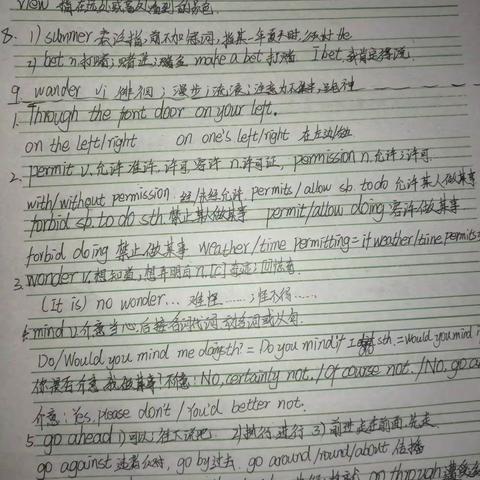 view 指在远处或高处看到的景色.
8. 1) summer 表泛指,前不加冠词,指某一年夏天时,须加 the
2) bet n.打赌; 赌 make a bet 打赌 I bet 我肯定
9. wander vi 徘徊; 漫步; 流浪; 注意力不集中,
1. Through the font door on your left.
on the left/right on one's left/right 在左边/
2. permit v.允许 准许.许可 容许 n.许可证, permission n.允许;许可.
with/without permission 经/未经允许 permits/allow sb. to do 允许某人做某事
forbid sb. to do sth. 禁止某人做某事 permit/allow doing 容许做某事
forbid doing 禁止做某事 weather/time permitting = if weather/time permits
3. wonder v.想知道,想弄明白 n.[c]奇迹;
(It is) no wonder... 难怪......; 
4. mind v.介意 当心 后接 动名词或从句.
Do/Would you mind me doing sth? = Do you mind if I sth. = would you mind
你是否介意我做某事? 不介意: No, certainly not. / Of course not. / No, go a
介意: Yes, please don't / You'd better not.
5. go ahead 1) 可以; 往下说吧 2) 执行 进行 3) 前进 走在前面,先走
go against 违背 , go by 过去. go around/round/about 传播
go through 遭受